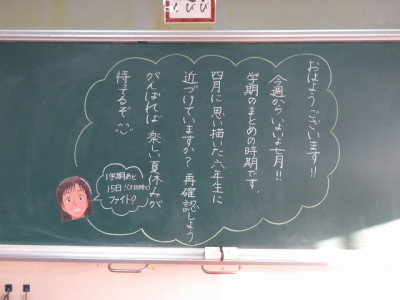 おはようございます!!
今週からいよいよ七月!!
学期のまとめの時期です。
四月に思い描いた六年生に
近づけていますか?再確認しよう
がんばれば楽しい夏休みが
待てるぞ
1学期あと
15日!
ファイト!